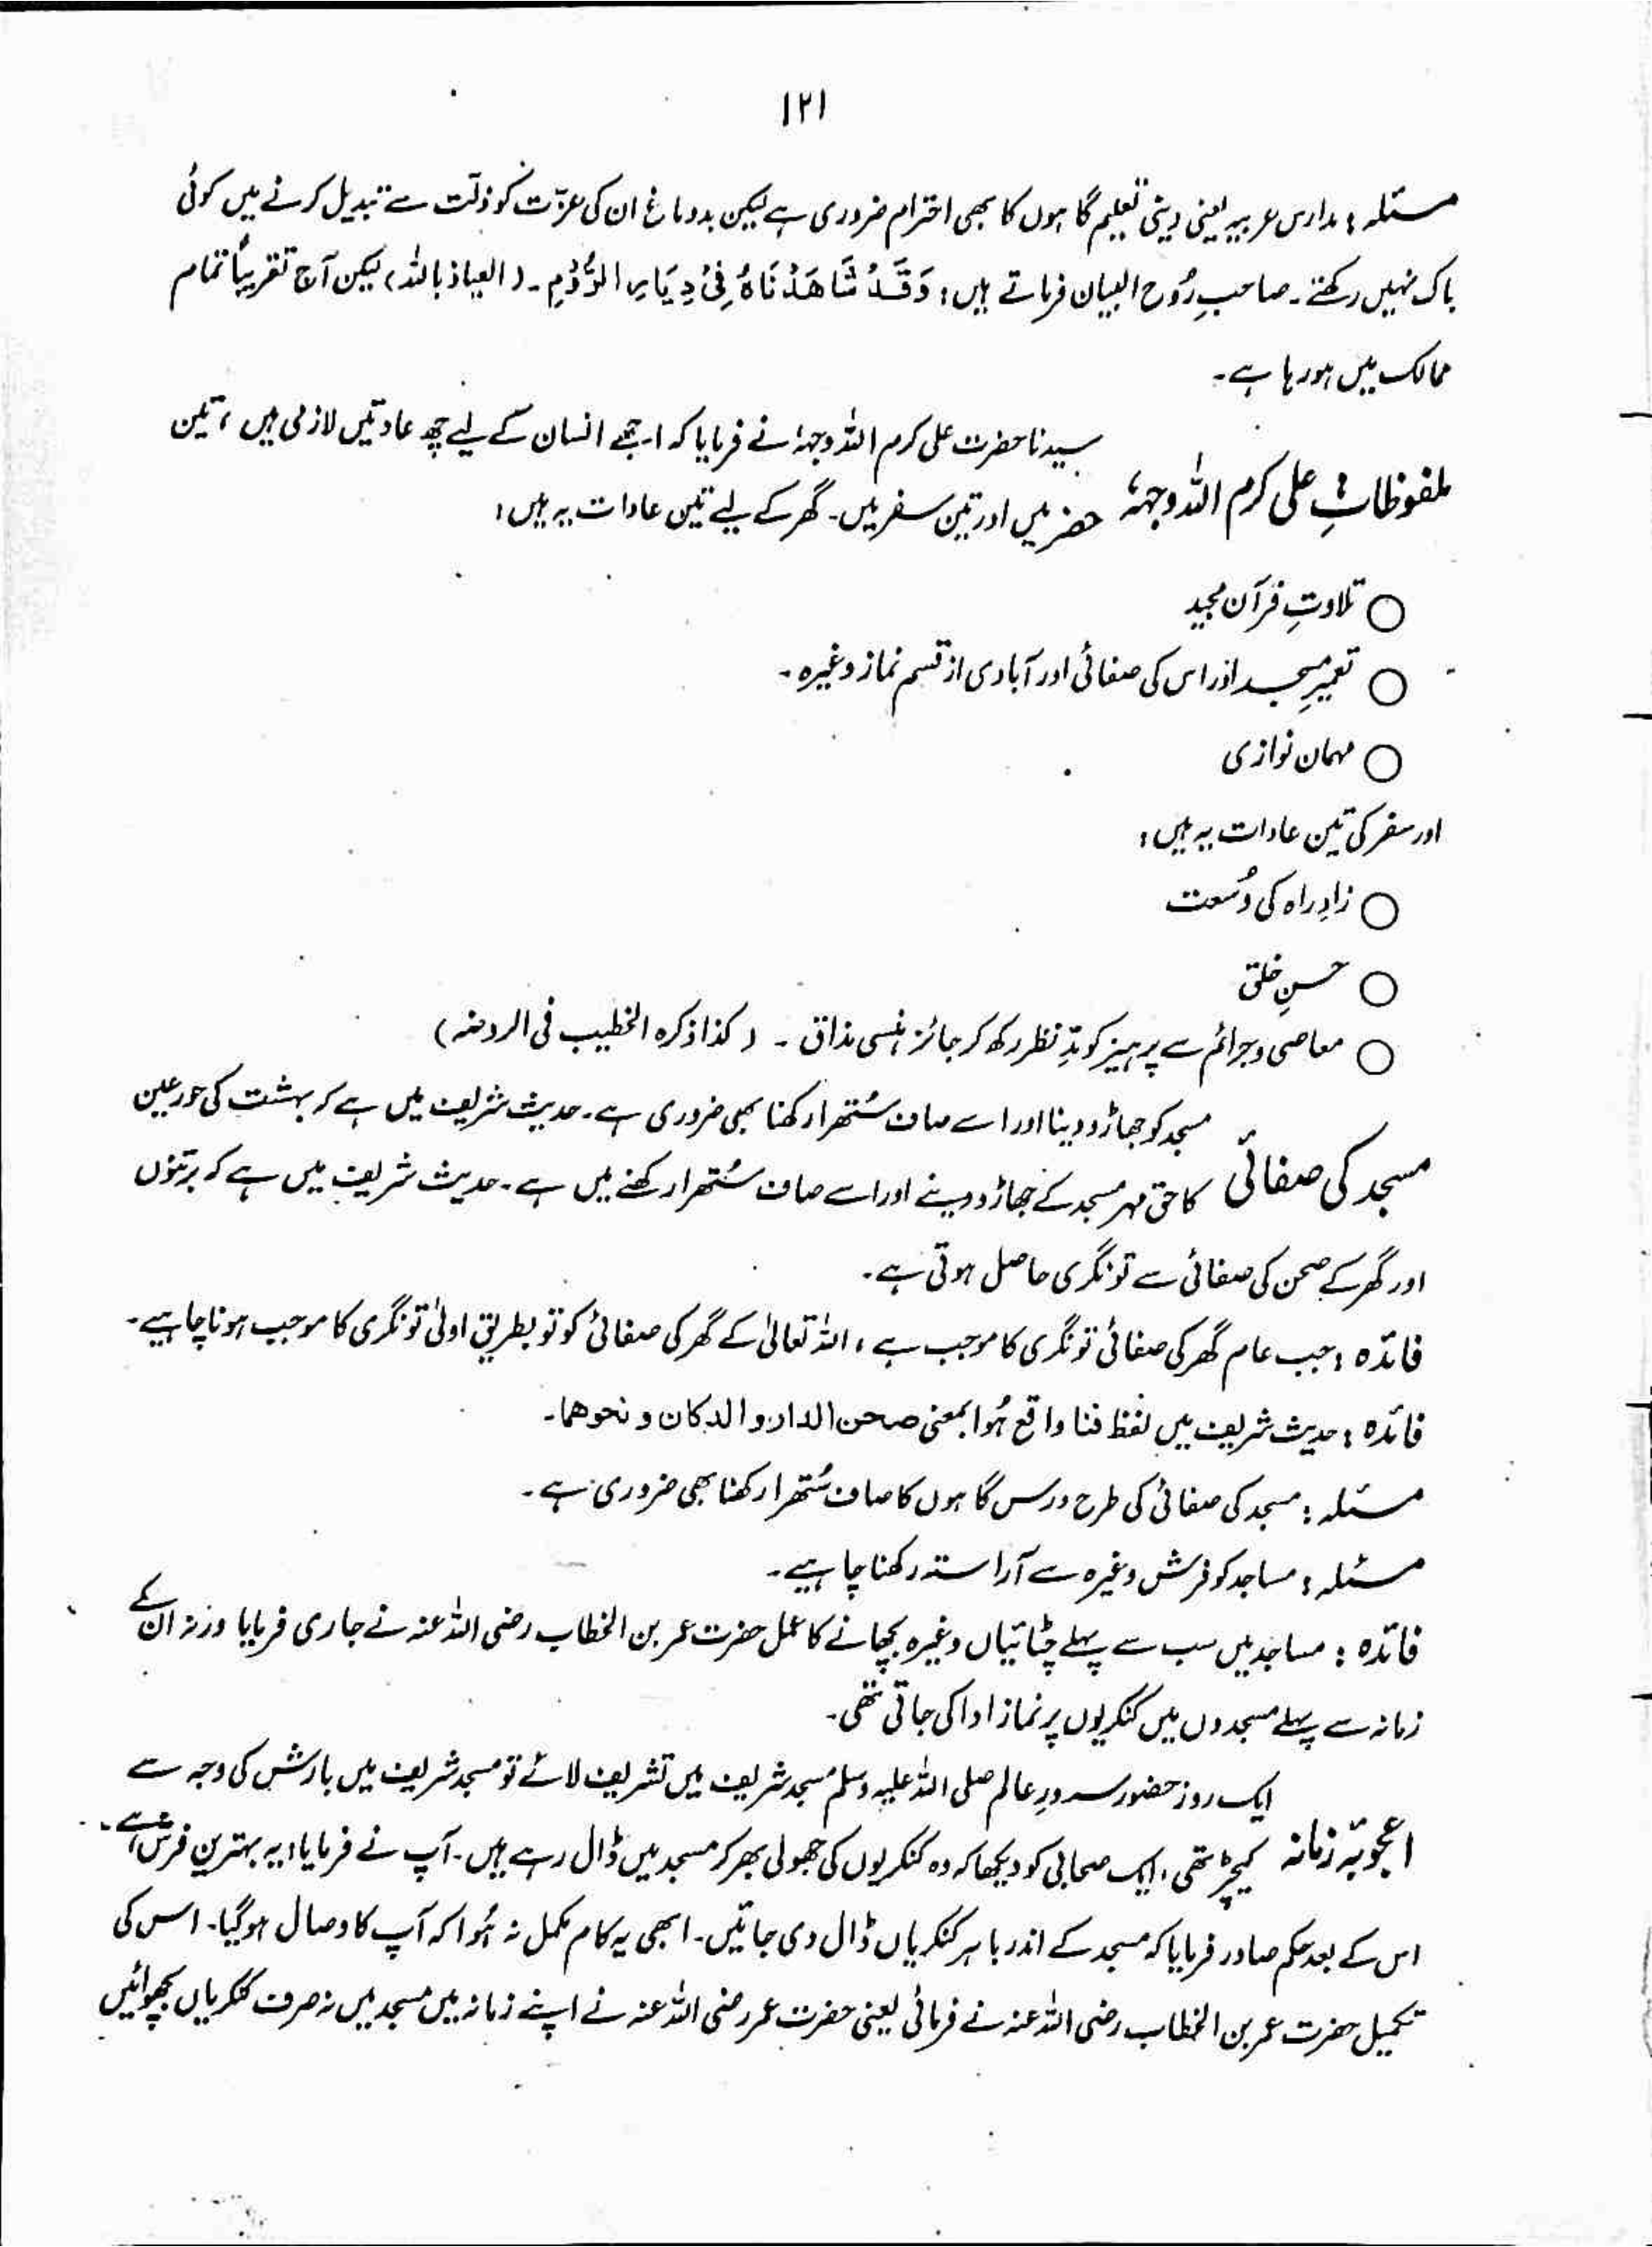 ۱۲۱
مسئلہ : مدارس عربیہ یعنی دینی تعلیم گاہوں کا بھی احترام ضروری ہے لیکن بددماغ ان کی عزّت کو ذلّت سے تبدیل کرنے میں کوئی
باک نہیں رکھتے ۔ صاحبِ رُوح البیان فرماتے ہیں : وَقَدْ شَاهَدْنَاهُ فِیْ دِیَارِ الرُّوْمِ ۔ (العیاذ باللہ) لیکن آج تقریباً تمام
ممالک میں ہو رہا ہے ۔
سیدنا حضرت علی کرم اللہ وجہہٗ نے فرمایا کہ اچھے انسان کے لیے چھ عادتیں لازمی ہیں ، تین
ملفوظاتِ علی کرم اللہ وجہہٗ حضر میں اور تین سفر میں ۔ گھر کے لیے تین عادات یہ ہیں :
○ تلاوتِ قرآن مجید
○ تعمیرِ مسجد اور اس کی صفائی اور آبادی از قسم نماز وغیرہ ۔
○ مہمان نوازی
اور سفر کی تین عادات یہ ہیں :
○ زادِ راہ کی وُسعت
○ حسنِ خلق
○ معاصی و جرائم سے پرہیز کو مدِّ نظر رکھ کر جائز ہنسی مذاق ۔ (کذا ذکرہ الخطیب فی الروضہ)
مسجد کو جھاڑو دینا اور اسے صاف سُتھرا رکھنا بھی ضروری ہے ۔ حدیث شریف میں ہے کہ بہشت کی حور عین
مسجد کی صفائی کا حق مہر مسجد کے جھاڑو دینے اور اسے صاف سُتھرا رکھنے میں ہے ۔ حدیث شریف میں ہے کہ برتنوں
اور گھر کے صحن کی صفائی سے تونگری حاصل ہوتی ہے ۔
فائدہ : جب عام گھر کی صفائی تونگری کا موجب ہے ، اللہ تعالیٰ کے گھر کی صفائی کو تو بطریق اولیٰ تونگری کا موجب ہونا چاہیے ۔
فائدہ : حدیث شریف میں لفظ فنا واقع ہُوا بمعنی صحن الدار و الدکان و نحوهما ۔
مسئلہ : مسجد کی صفائی کی طرح درس گاہوں کا صاف سُتھرا رکھنا بھی ضروری ہے ۔
مسئلہ : مساجد کو فرش وغیرہ سے آراستہ رکھنا چاہیے ۔
فائدہ : مساجد میں سب سے پہلے چٹائیاں وغیرہ بچھانے کا عمل حضرت عمر بن الخطاب رضی اللہ عنہ نے جاری فرمایا ورنہ ان کے
زمانہ سے پہلے مسجدوں میں کنکریوں پر نماز ادا کی جاتی تھی ۔
ایک روز حضور سرورِ عالم صلی اللہ علیہ وسلم مسجد شریف میں تشریف لائے تو مسجد شریف میں بارش کی وجہ سے
اعجوبۂ زمانہ کیچڑ تھی ، ایک صحابی کو دیکھا کہ وہ کنکریوں کی جھولی بھر کر مسجد میں ڈال رہے ہیں ۔ آپ نے فرمایا : یہ بہترین فرش ہے ۔
اس کے بعد حکم صادر فرمایا کہ مسجد کے اندر باہر کنکریاں ڈال دی جائیں ۔ ابھی یہ کام مکمل نہ ہُوا کہ آپ کا وصال ہو گیا ۔ اس کی
تکمیل حضرت عمر بن الخطاب رضی اللہ عنہ نے فرمائی یعنی حضرت عمر رضی اللہ عنہ نے اپنے زمانہ میں مسجد میں نہ صرف کنکریاں بچھوائیں